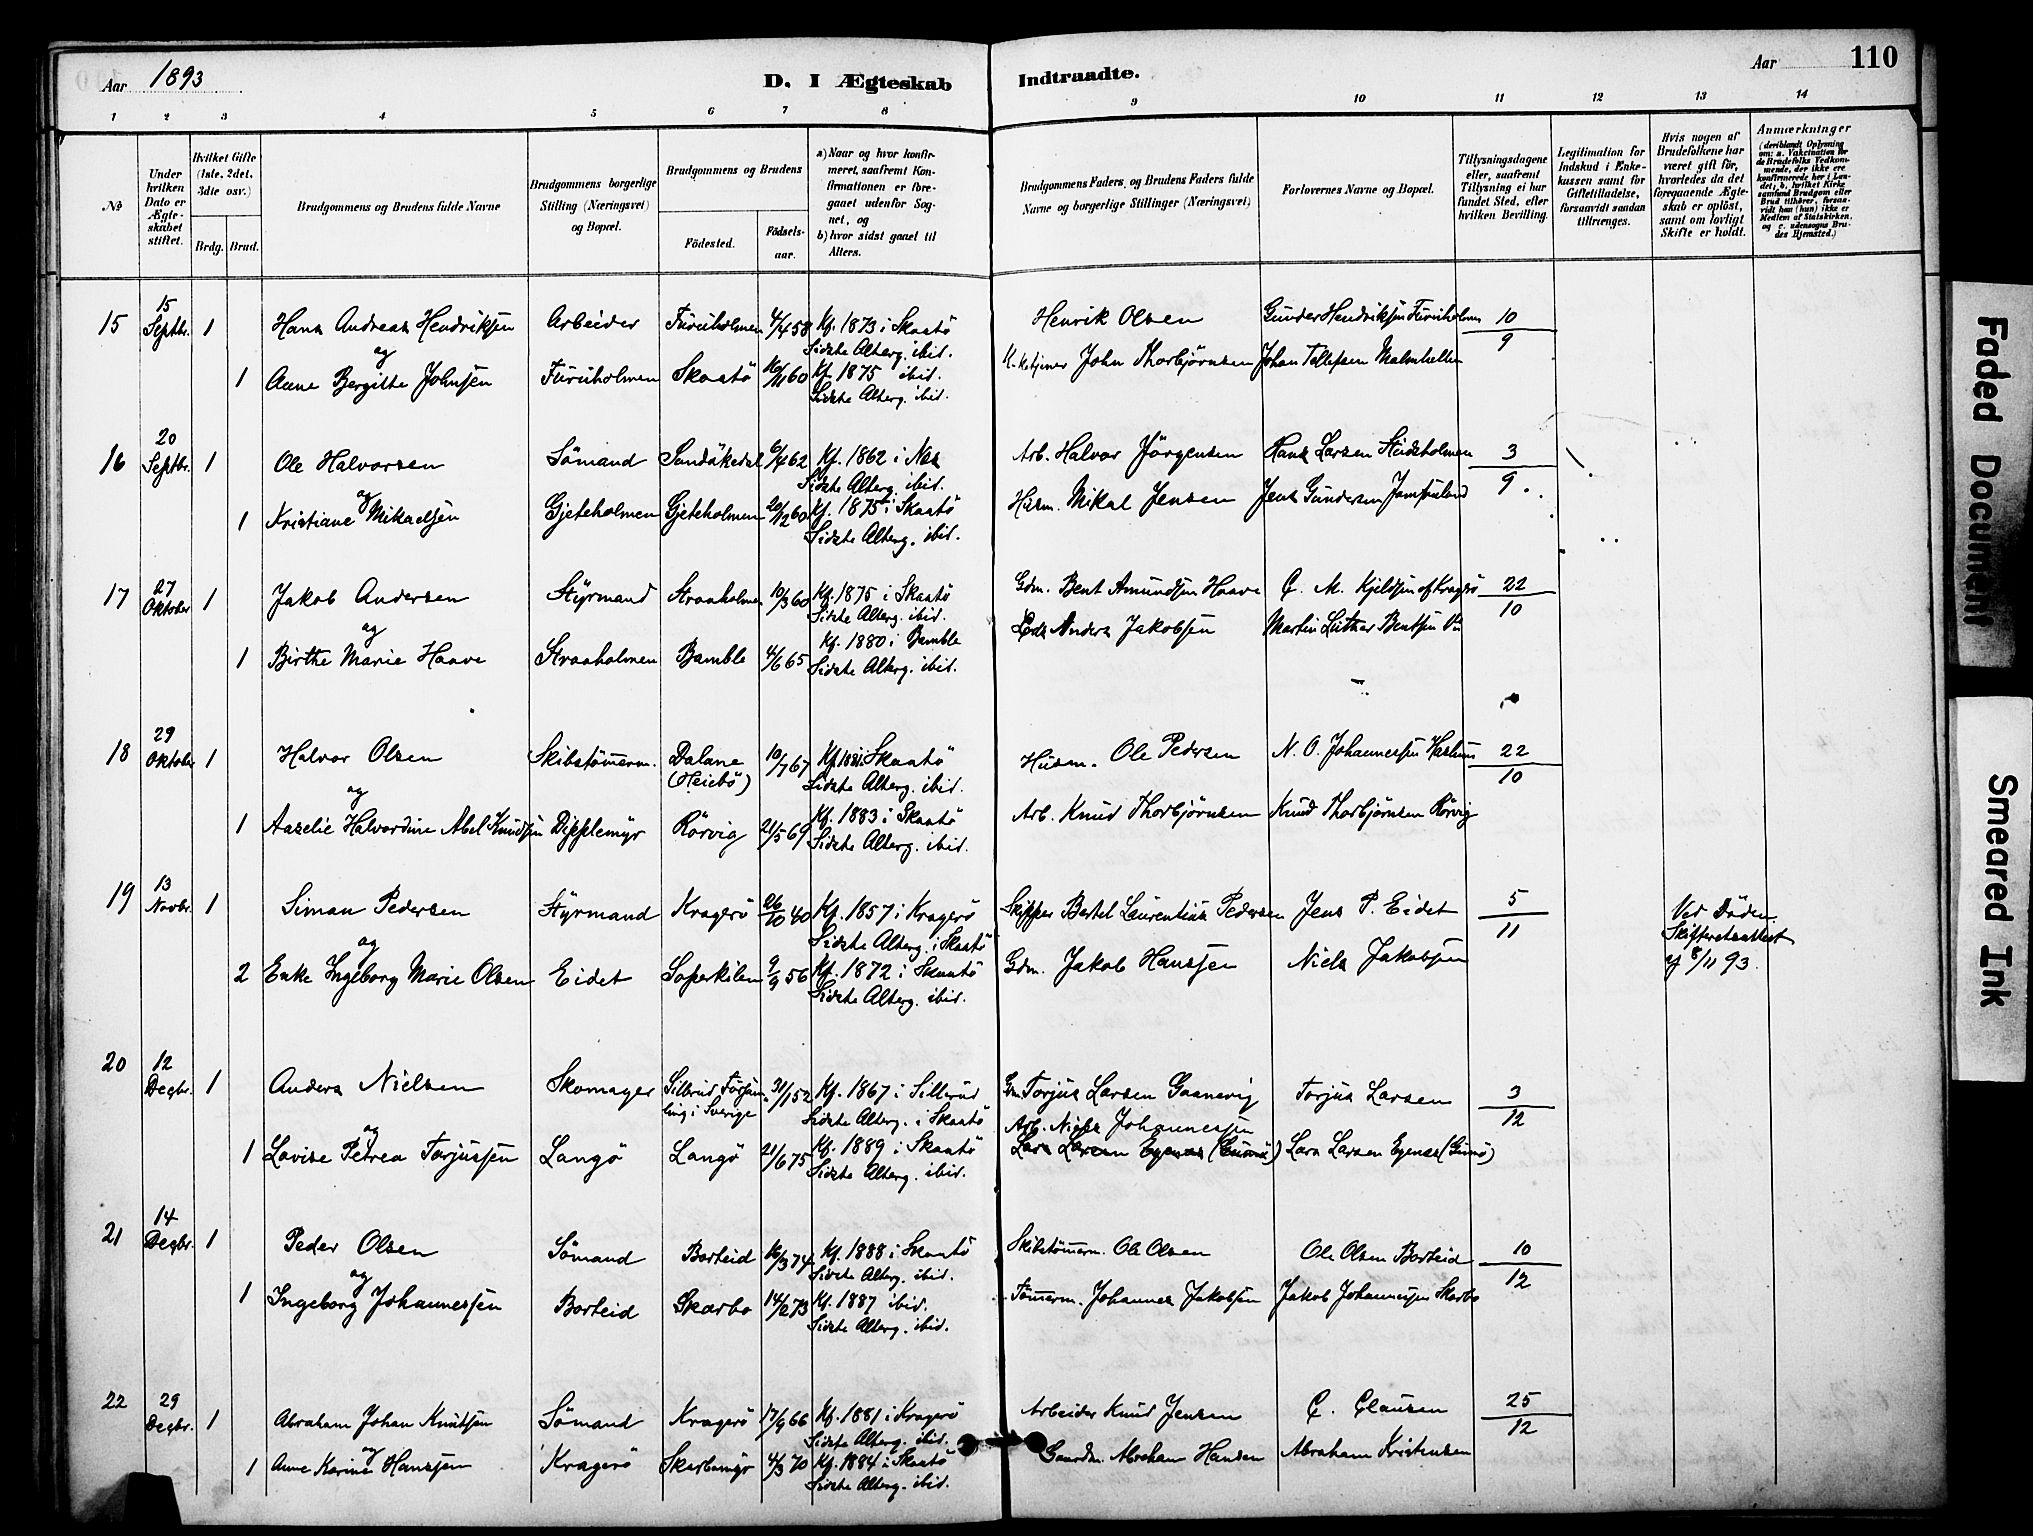 Aar 1893
D. I Ægteskab
Indtraadte.
Aar
110
1 2 3 4 5 6 7 8 9 10 11 12 13 14
No.
Under hvilken Dato er Ægteskabet stiftet.
Hvilket Gifte (1ste, 2det, 3die osv.)
Brdg. Brud.
Brudgommens og Brudens fulde Navne
Brudgommens borgerlige Stilling (Næringsvei) og Bopæl.
Brudgommens og Brudens
Födested.
Födselsaar.
a) Naar og hvor konfirmeret, saafremt Konfirmationen er foregaaet udenfor Sognet, og
b) hvor sidst gaaet til Alters.
Brudgommens Faders, og Brudens Faders fulde Navne og borgerlige Stillinger (Næringsvei)
Forlovernes Navne og Bopæl.
Tillysningsdagene eller, saafremt Tillysning ei har fundet Sted, efter hvilken Bevilling.
Legitimation for Indskud i Enkekassen samt for Giftetilladelse, forsaavidt saadan tiltrænges.
Hvis nogen af Brudefolkene har været gift før, hvorledes da det foregaaende Ægteskab er oplöst, samt om lovligt Skifte er holdt.
Anmærkninger
(deriblandt Oplysning om: a. Vakcination for de Brudefolks Vedkommende, der ikke ere konfirmerede her i Landet; b. hvilket Kirkesamfund Brudgom eller Brud tilhører, forsaavidt han (hun) ikke er Medlem af Statskirken, og c. udensogns Brudes Hjemsted.)
15 15 Septbr. 1 Hans Andreas Hendriksen Arbeider Furuholmen 4/4 58 Kf. 1873 i Skaatö Henrik Olsen Gunder Hendriksen Furuholmen 10/9
og Sidste Alterg. ibid.
1 Anne Bergitte Johnsen Furuholmen Skaatö 16/11 60 Kf. 1875 ibid. John Thorbjörnsen Johan Tellefsen
Sidste Alterg. ibid.
16 20 Septbr. 1 Ole Halvorsen Sömand Sandökedal 6/4 62 Kf. 1862 i Næs Arb. Halvor Jörgensen Hans Larsen 3/9
og Sidste Alterg. ibid.
1 Kristiane Mikaelsen Gjeteholmen Gjeteholmen 20/12 60 Kf. 1875 i Skaatö Husm. Mikal Jensen Jens Gundersen Jomfruland
Sidste Alterg. ibid.
17 27 Oktober 1 Jakob Andersen Styrmand Straaholmen 10/3 60 Kf. 1875 i Skaatö Gdm. Bent Amundsen Haave C. M. Kjeldsen af Kragerö 22/10
og Sidste Alterg. ibid.
1 Birthe Marie Haave Straaholmen Bamble 4/6 65 Kf. 1880 i Bamble Anders Jakobsen Martin Luther Bentsen
Sidste Alterg. ibid.
18 29 Oktober 1 Halvor Olsen Skibstömerm. Dalane (Heiebö) 10/7 67 Kf. 1882 i Skaatö Husm. Ole Pedersen N. O. Johannessen 22/10
og Sidste Alterg. ibid.
1 Aaselie Halvordine Abel Knudsen Dypplemyr Rörvig 21/5 69 Kf. 1883 i Skaatö Arb. Knud Thorbjörnsen Knud Thorbjörnsen Rörvig
Sidste Alterg. ibid.
19 13 Novbr. 1 Simon Pedersen Styrmand Kragerö 26/10 40 Kf. 1857 i Kragerö Skipper Bertel Laurentius Pedersen Jens P. Eidet 5/11 Ved Döden.
og Sidste Alterg. i Skaatö Skifteretsattest
2 Enke Ingeborg Marie Olsen Eidet Soperkilen 9/9 56 Kf. 1872 i Skaatö Gdm. Jakob Hanssen Niels Jakobsen af 8/11 93.
Sidste Alterg. ibid.
20 12 Decbr. 1 Anders Nielsen Skomager Sillerud Forsamling i Sverige 31/1 52 Kf. 1867 i Sillerud Gm. Torjus Larsen Gaanevig Torjus Larsen 3/12
og Sidste Alterg. i Skaatö Arb. Niels Johannessen
1 Lovise Petrea Torjussen Langö Langö 21/6 75 Kf. 1889 i Skaatö Lars Larsen Egenes (Gumö) Lars Larsen Egenes (Gumö)
Sidste Alterg. ibid.
21 14 Decbr. 1 Peder Olsen Sömand Borteid 16/3 74 Kf. 1888 i Skaatö Skibstömerm. Ole Olsen Ole Olsen Borteid 10/12
og Sidste Alterg. ibid.
1 Ingeborg Johannessen Borteid Skarbo 14/2 73 Kf. 1887 ibid. Tömmerm. Johannes Jakobsen Jakob Johannessen Skarbo
Sidste Alterg. ibid.
22 29 Decbr. 1 Abraham Johan Knutsen Sömand Kragerö 17/9 66 Kf. 1881 i Kragerö Arbeider Knud Jensen C. Clausen 25/12
og Sidste Alterg. ibid.
1 Anne Karine Hanssen Kragerö Skarbumyr 4/3 70 Kf. 1884 i Skaatö Gaardm. Abraham Hansen Abraham Kristensen
Sidste Alterg. ibid.
Faded Document
Smeared Ink